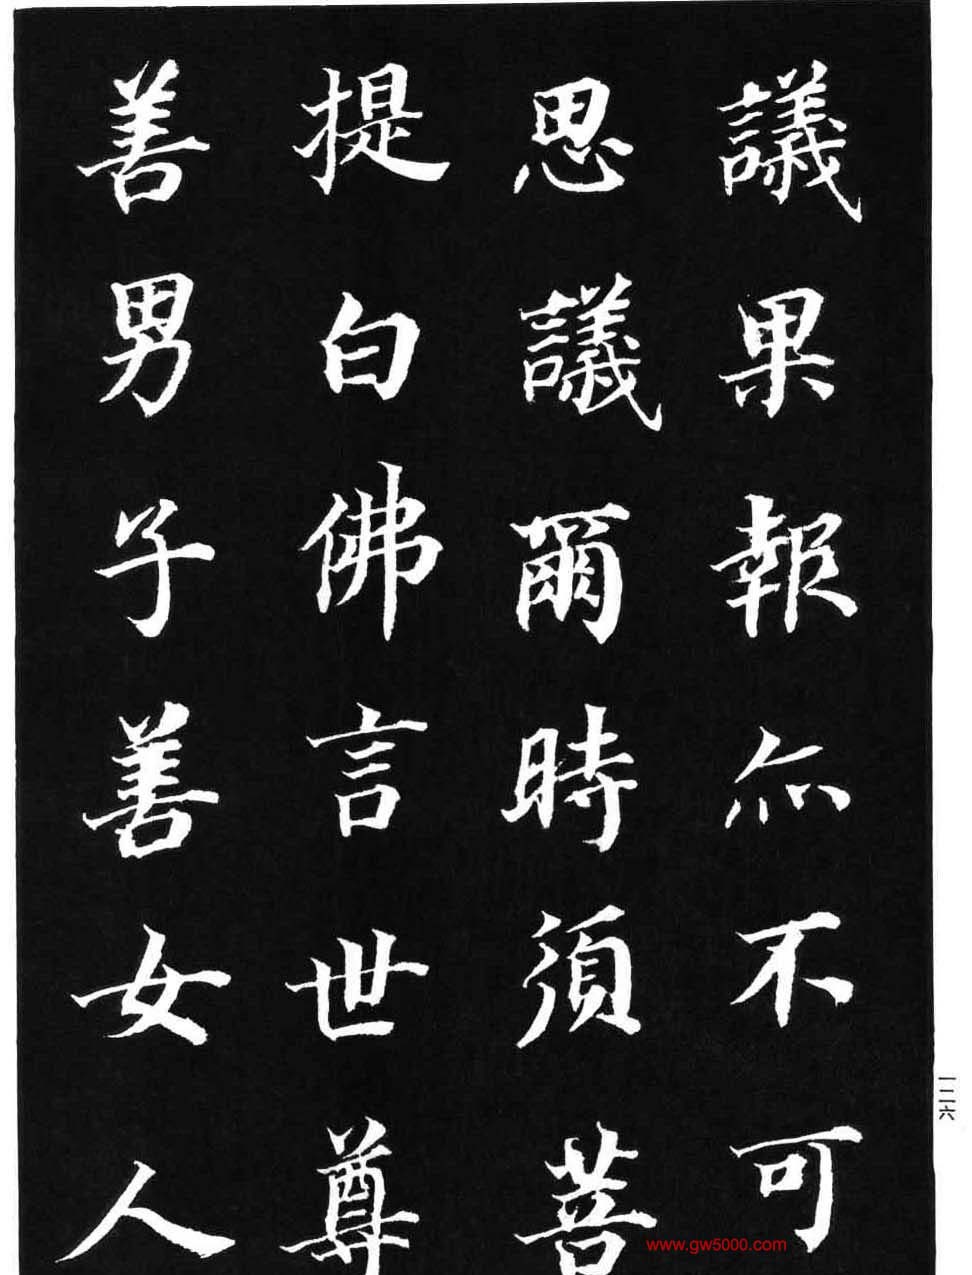 議果報亦不可
思議爾時須菩
提白佛言世尊
善男子善女人
一二六
www.gw5000.com